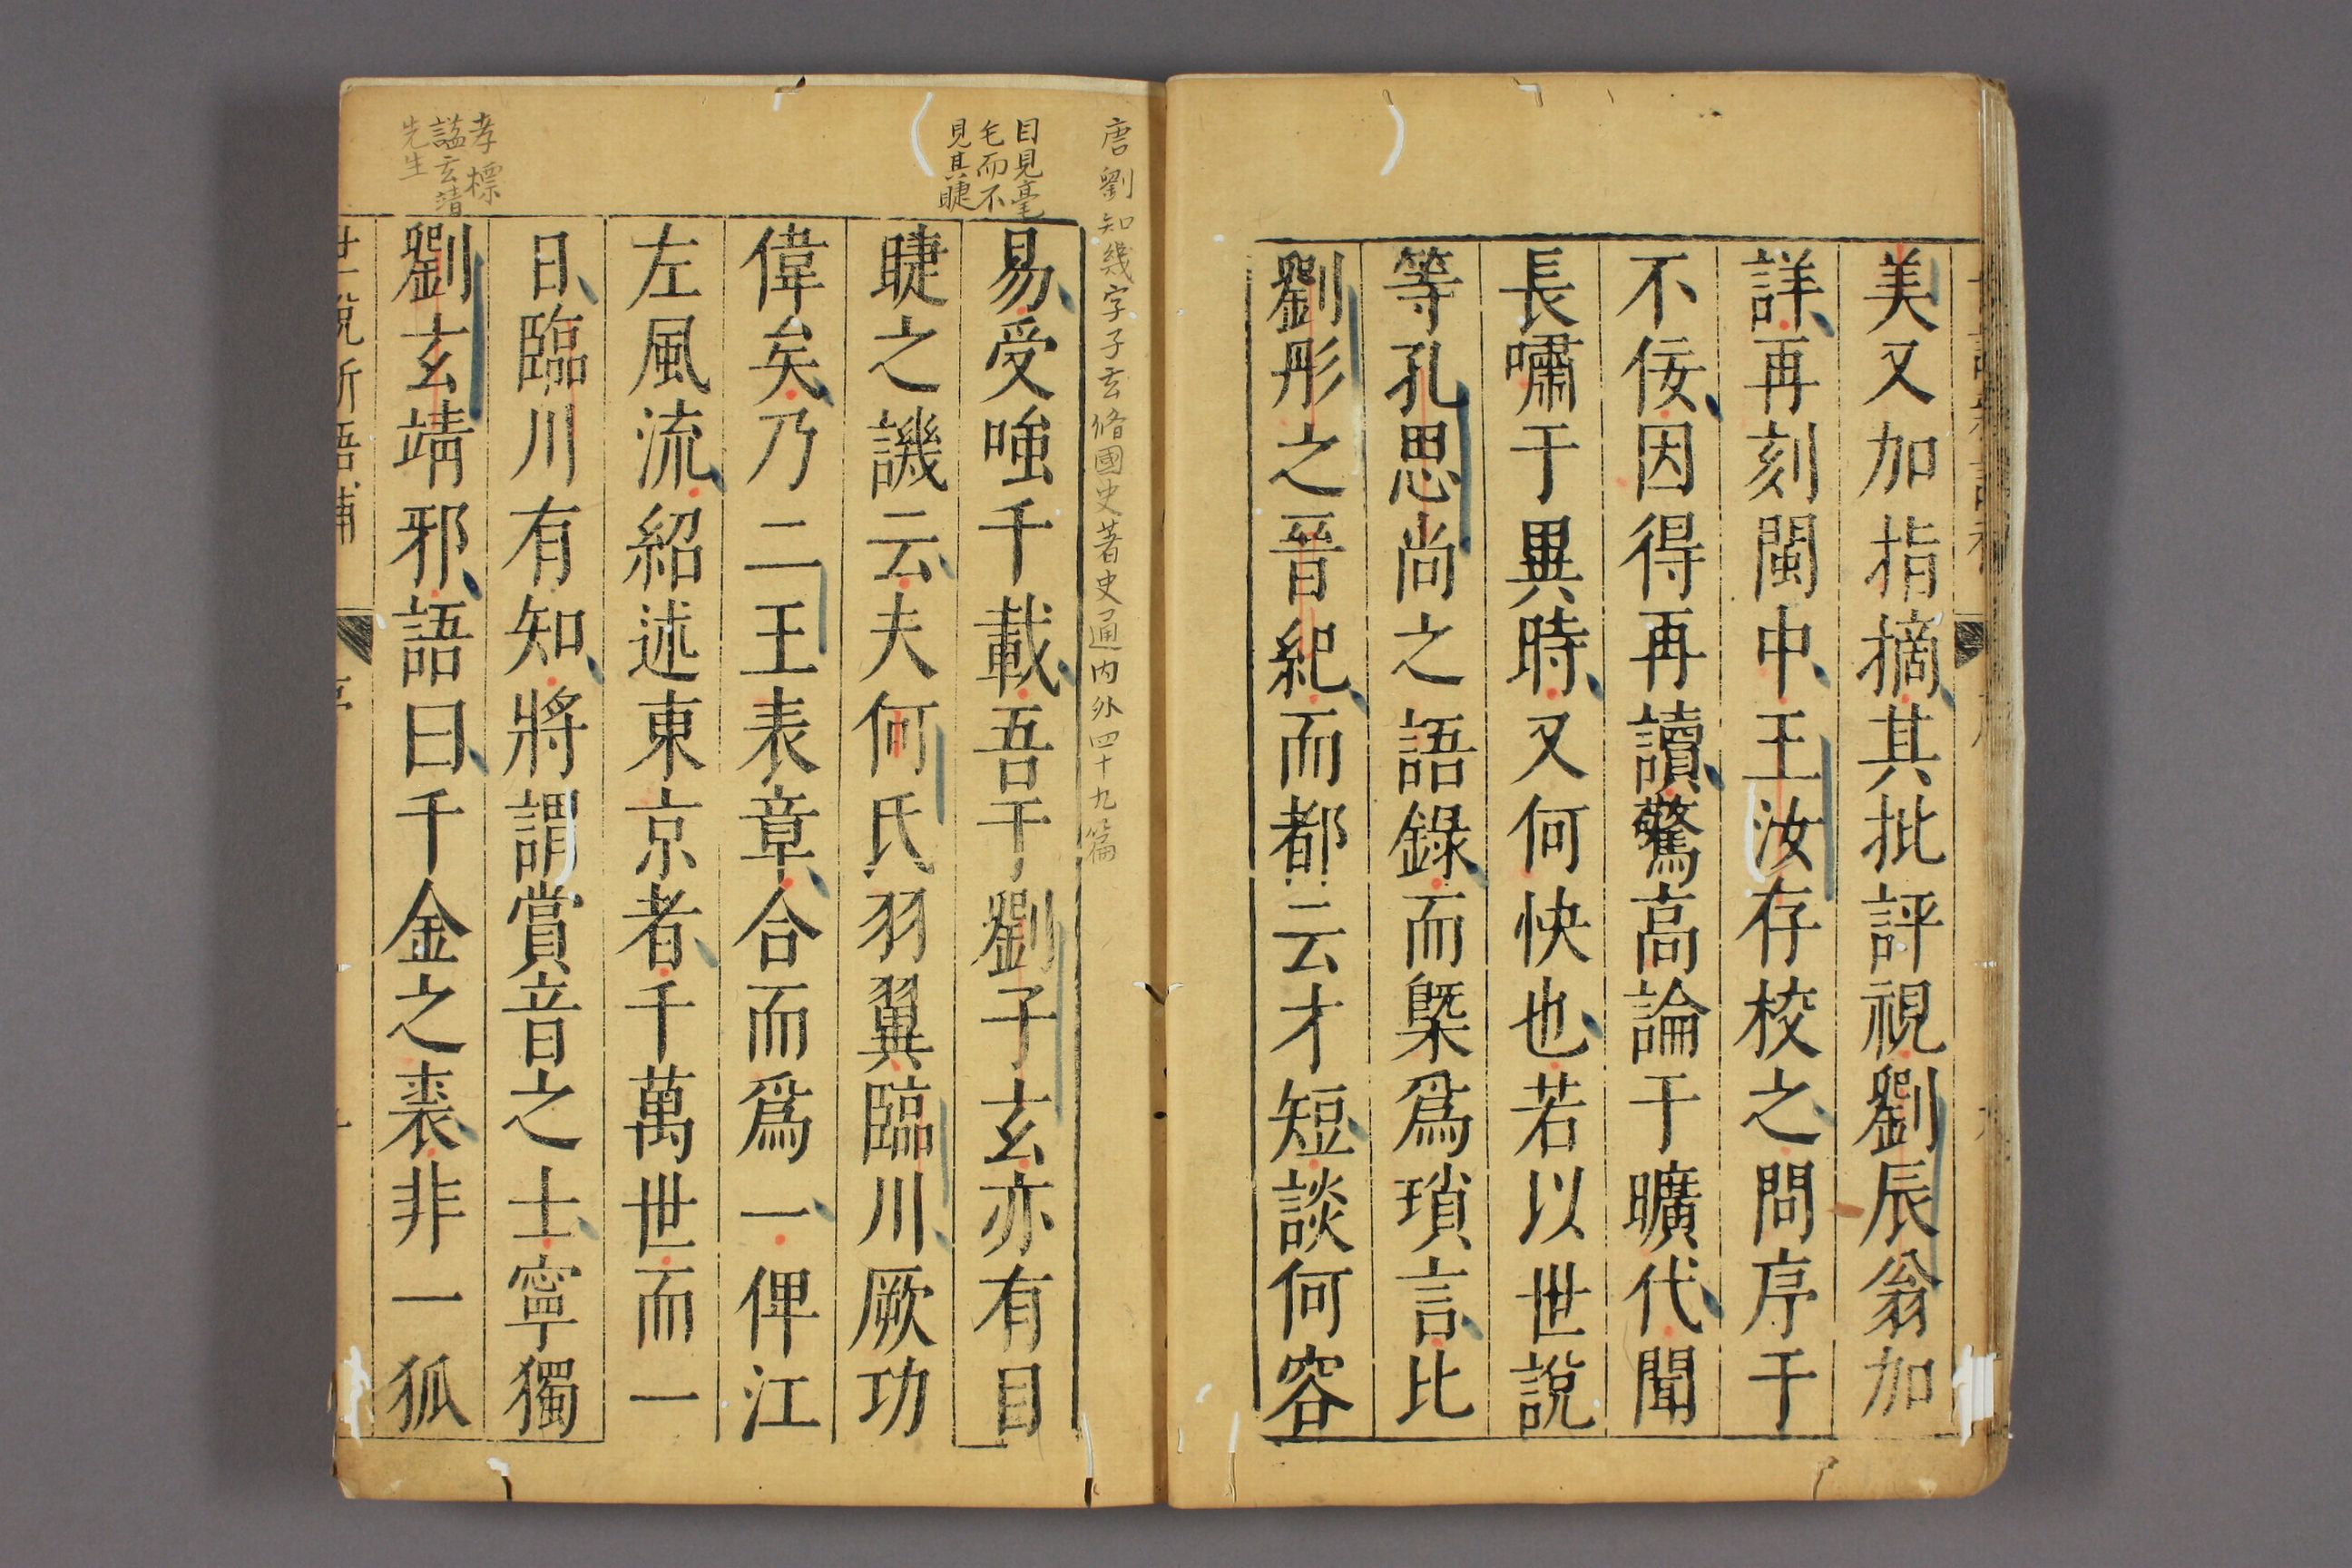 美又加指摘其批評視劉辰翁加
詳再刻閩中王汝存校之問序于
不佞因得再讀驚高論于曠代聞
長嘯于異時又何快也若以世說
等孔思尚之語錄而槩爲瑣言比
劉彤之晉紀而都云才短談何容
唐劉知幾字子玄脩國史著史通內外四十九篇
目見毫
毛而不
見其睫
易受嗤千載吾于劉子玄亦有目
睫之譏云夫何氏羽翼臨川厥功
偉矣乃二王表章合而爲一俾江
左風流紹述東京者千萬世而一
日臨川有知將謂賞音之士寧獨
孝標
諡玄靖
先生
劉玄靖邪語曰千金之裘非一狐
世說新語補